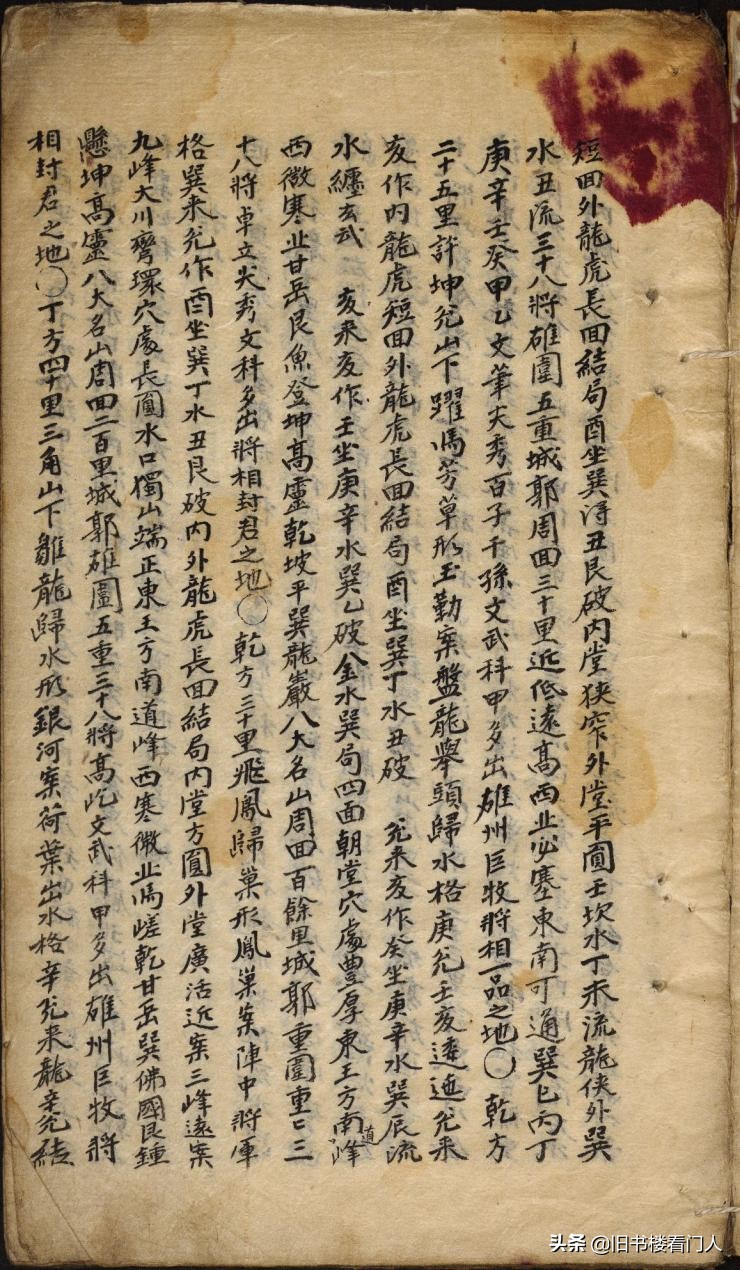 短回外龍虎長回結局酉坐巽淂丑艮破內堂狹窄外堂平圓壬坎水丁未流龍俠外巽
水丑流三十八將雄圍五重城郭周回三十里近低遠高西北必塞東南可通巽巳丙丁
庚辛壬癸甲乙文筆尖秀百子千孫文武科甲多出雄州巨牧將相一品之地〇 乾方
二十五里許坤兌山下躍馬芳草形玉勒案盤龍舉頭歸水格庚兌壬亥逶迤兌來
亥作內龍虎短回外龍虎長回結局酉坐巽丁水丑破 兌來亥作癸坐庚辛水巽辰流
水纏玄武 亥來亥作壬坐庚辛水巽乙破金水巽局四面朝堂穴處豊厚東王方南道峰
西微寒北甘岳艮魚登坤高靈乾坡平巽龍巖八大名山周回百餘里城郭重圍重〻三
十八將卓立尖秀文科多出將相封君之地〇 乾方三十里飛鳳歸巢形鳳巢案陣中將軍
格巽來兌作酉坐巽丁水丑艮破內外龍虎長回結局內堂方圓外堂廣活近案三峰遠案
九峰大川齊環穴處長圓水口獨山端正東王方南道峰西寒微北馬嵯乾甘岳巽佛國艮鍾
懸坤高靈八大名山周回二百里城郭雄圍五重三十八將高屹文武科甲多出雄州巨牧將
相封君之地〇丁方四十里三角山下雛龍歸水形銀河案荷葉出水格辛兌來龍辛兌結
头条 @旧书楼看门人